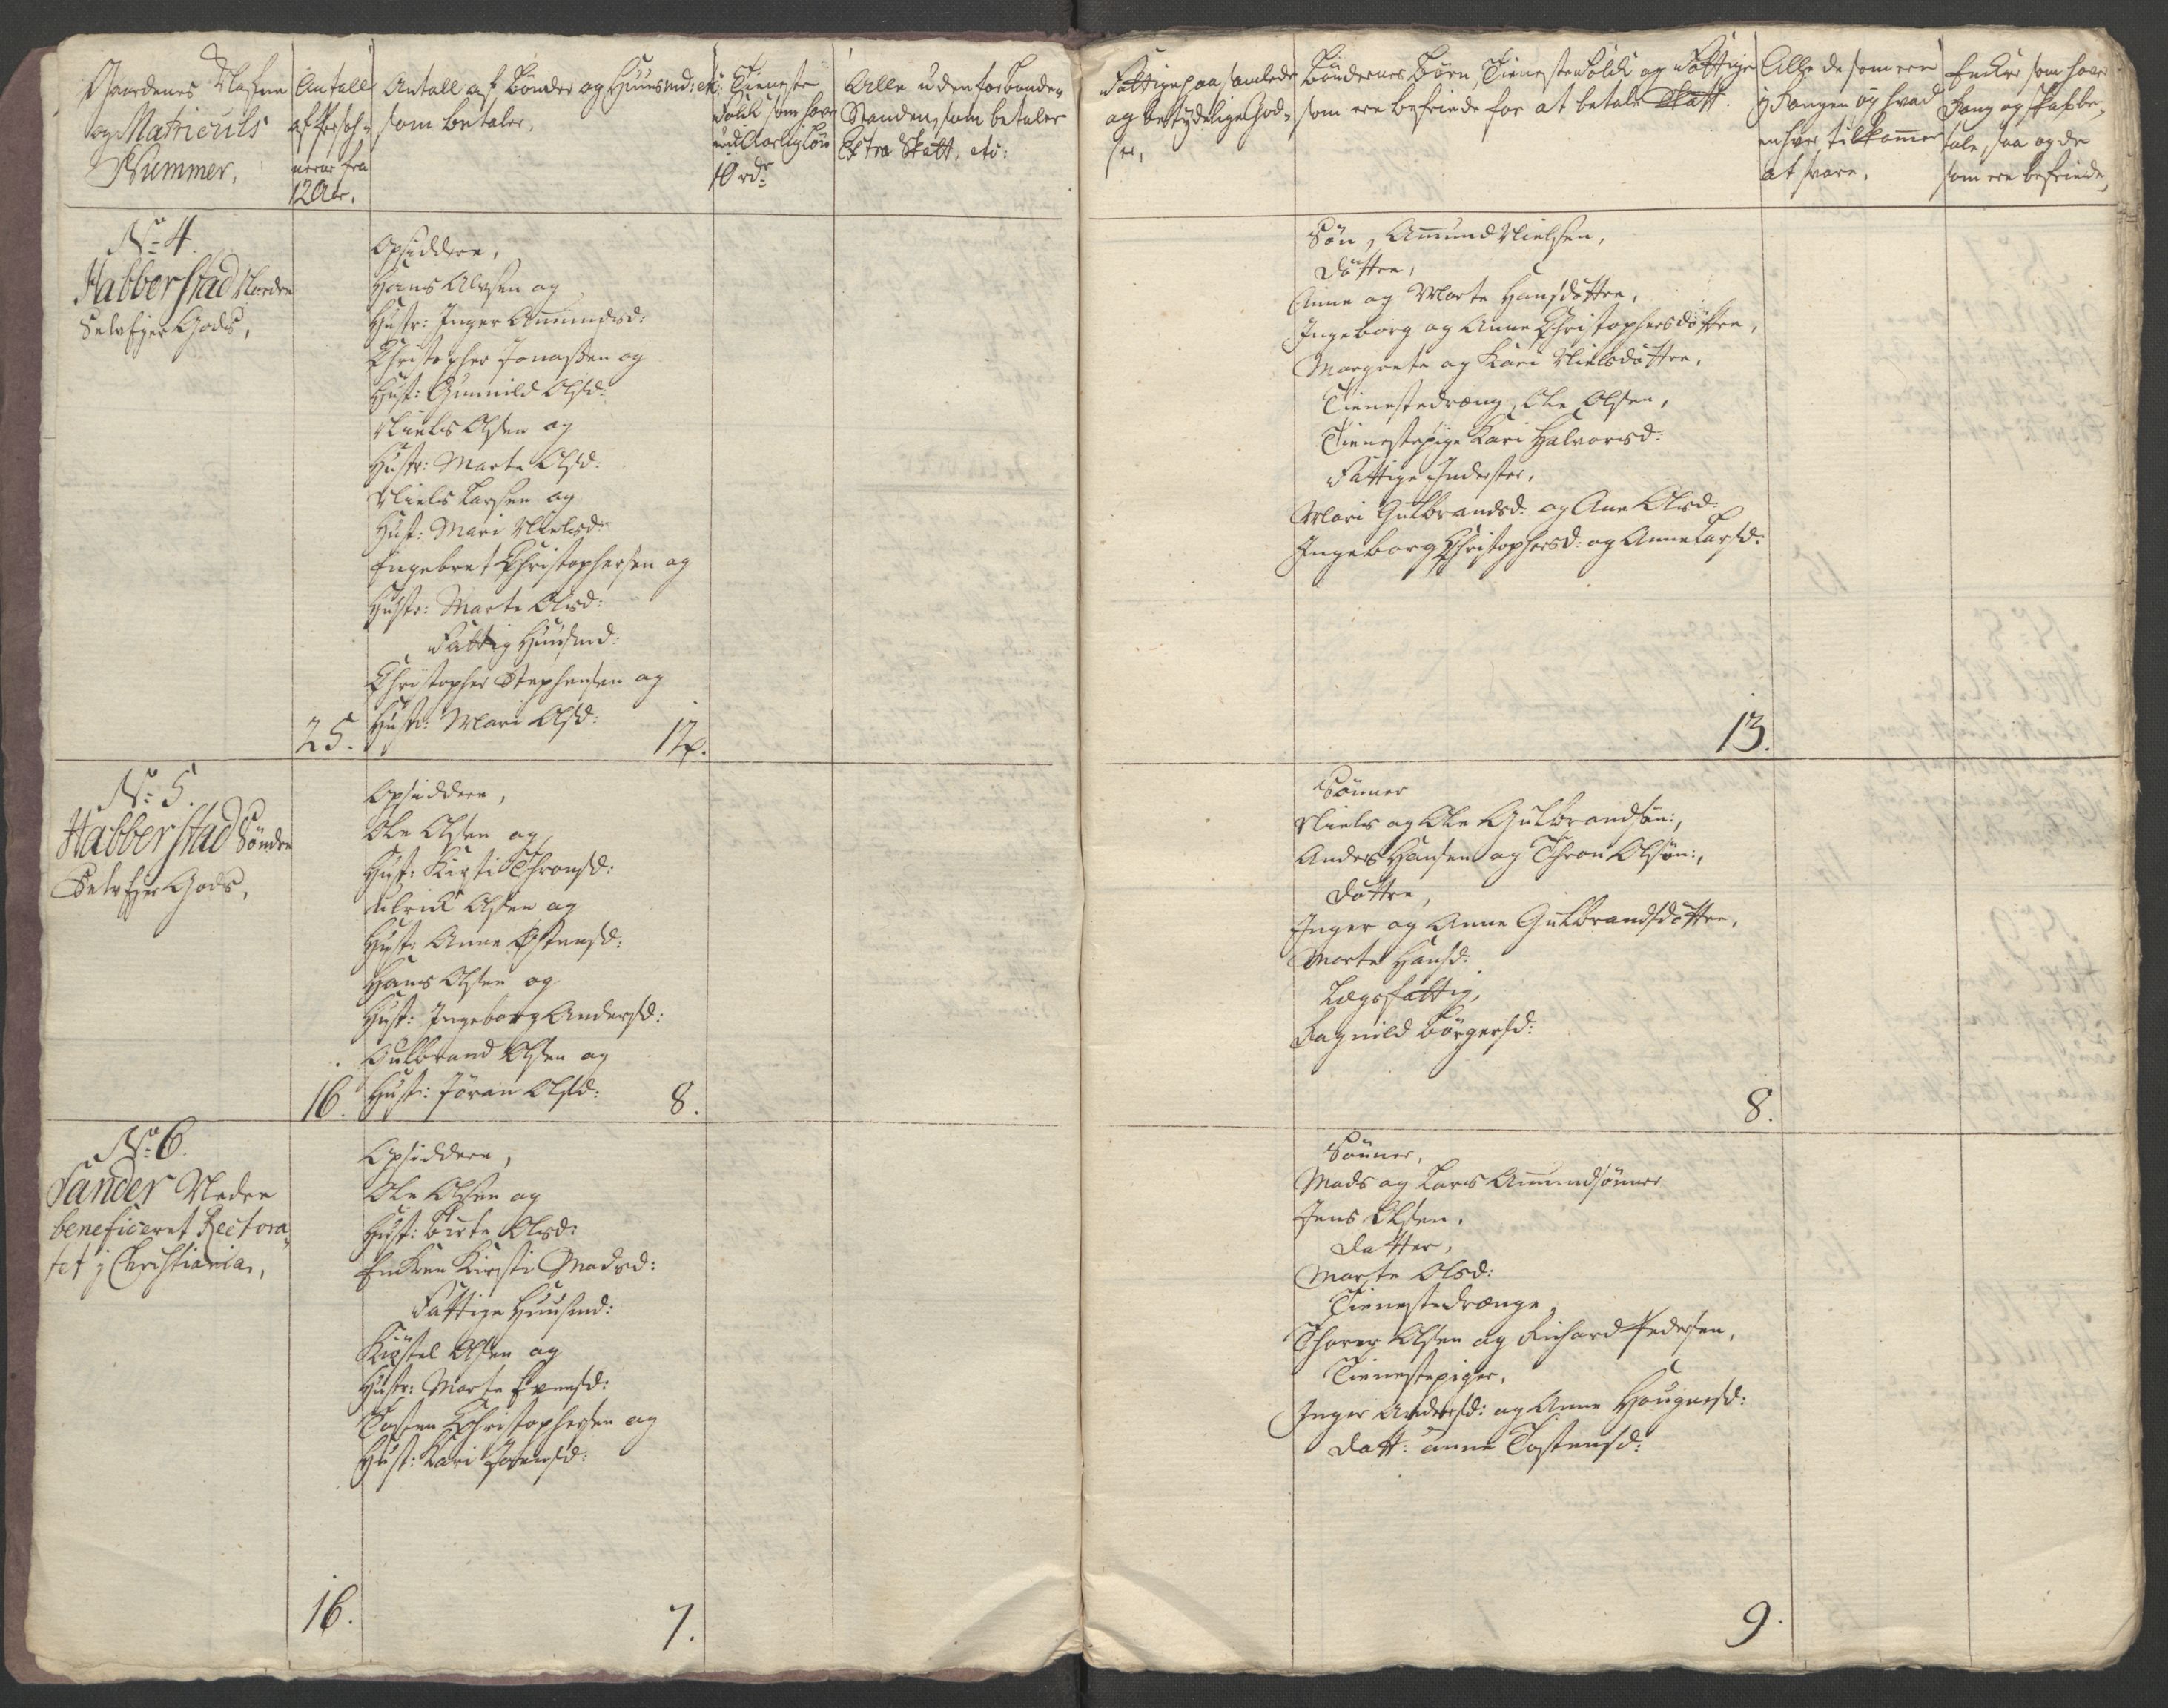 Gaardenes Nafne
og Matriculs
Nummer,
Antall
af Persoh-
nerne fra
12 Aar.
Antall af Bönder og Huusmd: etc:
som betaler,
Tieneste
Folk som have
ud Aarlig Lön
10 rdr
Alle uden for Bonde-
Standen, som betaler
Extra Skatt, etc:
Fattige paa samlede
og betydelige God-
ser,
Böndernes Börn, Tieneste Folk og Fattige
som ere befriede for at betale Skatt.
Alle de som ere
i Rangen og hvad
enhver tilkommer
at svare.
Enker som have
Rang og skal be-
tale, saa og de
som ere befriede,
No 4.
Habberstad Nordre
Selv Ejer Gods,
Opsiddere,
Hans Olesen og
Hustr: Inger Amundsd:
Christopher Jonassen og
Hust: Gunnild Olsd:
Niels Olsen og
Hustr: Marte Olsd:
Niels Larsen og
Hust: Mari Nielsd:
Engebret Christophersen og
Hustr: Marte Olsd:
Fattig Huusmd:
Christopher Stephensen og
Hustr: Mari Olsd:
25.
12.
Sön, Amund Nielsen,
Döttre,
Anne og Marte Hansdöttre,
Ingeborg og Anne Christophersdöttre,
Margrete og Kari Nielsdöttre,
Tienestedreng, Ole Olsen,
Tienestepige Kari Halvorsd:
Fattige Inderster,
Mari Gulbrandsd: og Ane Olsd:
Ingeborg Christophersd: og Anne Larsd:
13.
No 5.
Habberstad Söndre
Selv Ejer Gods,
Opsiddere,
Ole Olsen og
Hust: Kirsti Thronsd:
Ulrick Olsen og
Hust: Anne Östensd:
Hans Olsen og
Hust: Ingeborg Andersd:
Gulbrand Olsen og
Hust: Jöran Olsd:
16.
8.
Sönner
Niels og Ole Gulbrandsön:,
Anders Hansen og Thron Olsön:,
Döttre,
Inger og Anne Gulbrandsdöttre,
Marte Hansd:
Lægsfattig,
Ragnild Börgersd:
8.
No 6.
Sander Nedre
beneficeret Rectora-
tet i Christiania,
Opsiddere,
Ole Olsen og
Hust: Birte Olsd:
Enken Kirsti Madsd:
Fattige Huusmd:
Kiöstel Olsen og
Hustr: Marte Evensd:
Tosten Christophersen og
Hust: Kari
16.
7.
Sönner,
Mads og Lars Amundsönner
Jens Olsen,
Datter,
Marte Olsd:
Tienestedrenge,
Thorer Olsen og Richard Pedersen,
Tienestepiger,
Inger Andersd: og Anne Haugnesd:
Datt: Anne Tostensd:
9.